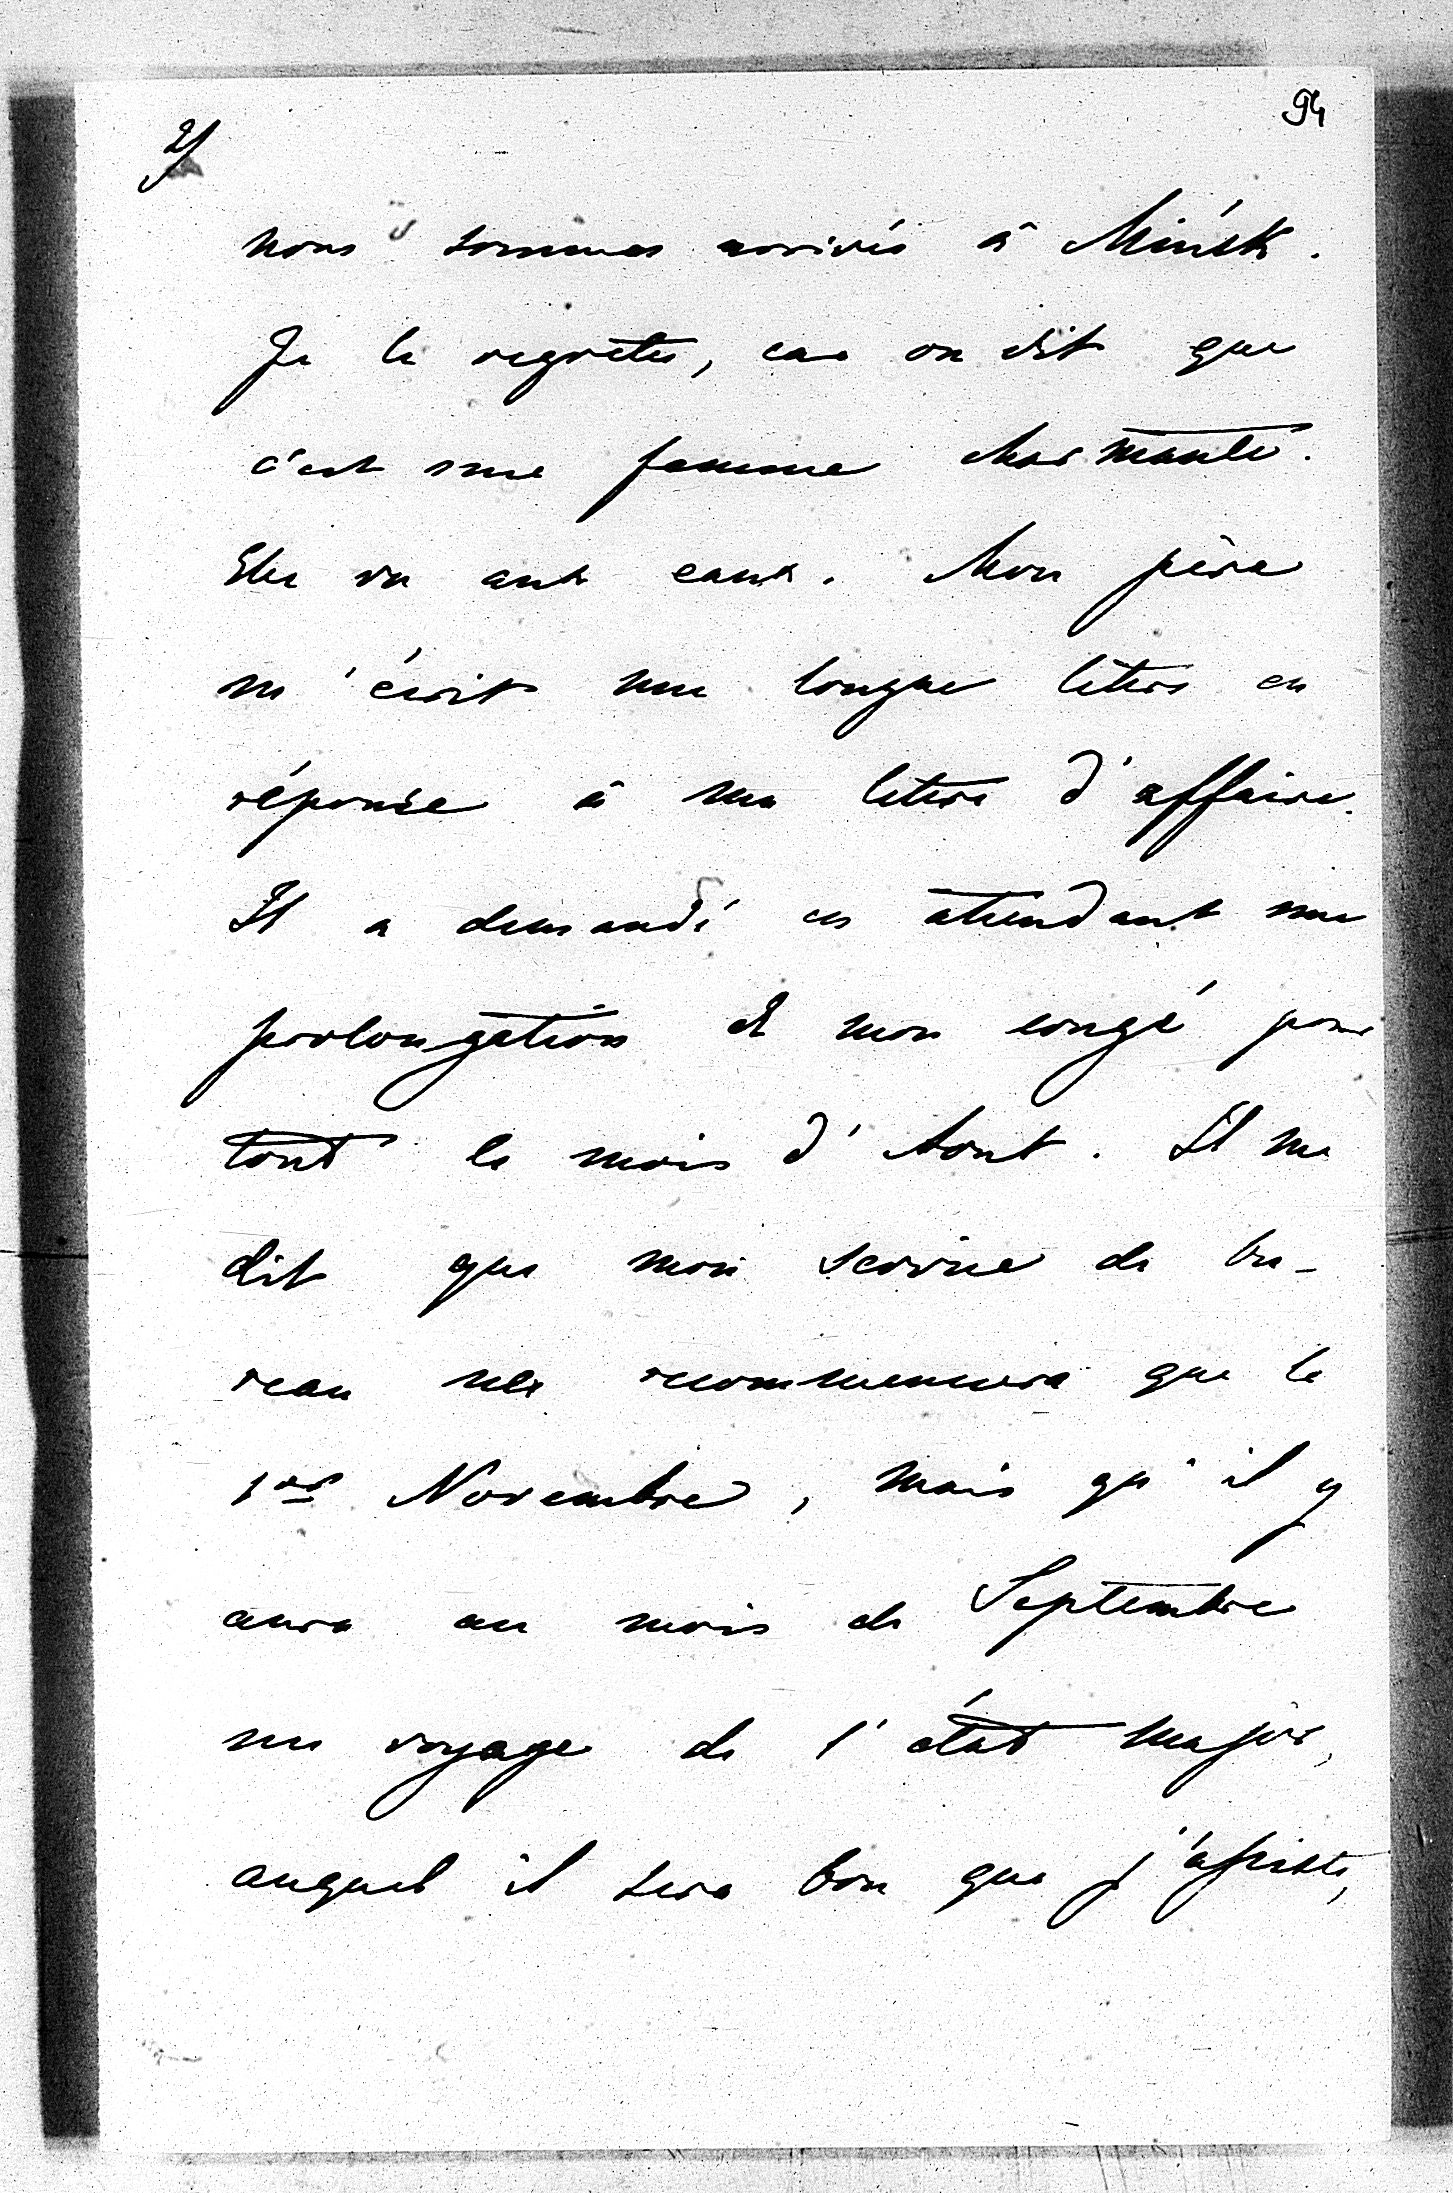 2/
94
nous sommes arrivés à Minsk.
Je le regrette, car on dit que
c'est une femme charmante.
Elle va aux eaux. Mon père
m'écrit une longue lettre en
réponse à ma lettre d'affaire.
Il a demandé en attendant une
prolongation de mon congé pour
tout le mois d'Aout. Il me
dit que mon service de bu-
reau ne recommencera que le
1er Novembre, mais qu'il y
aura au mois de Septembre
un voyage de l'état major,
auquel il sera bon que j'assiste,